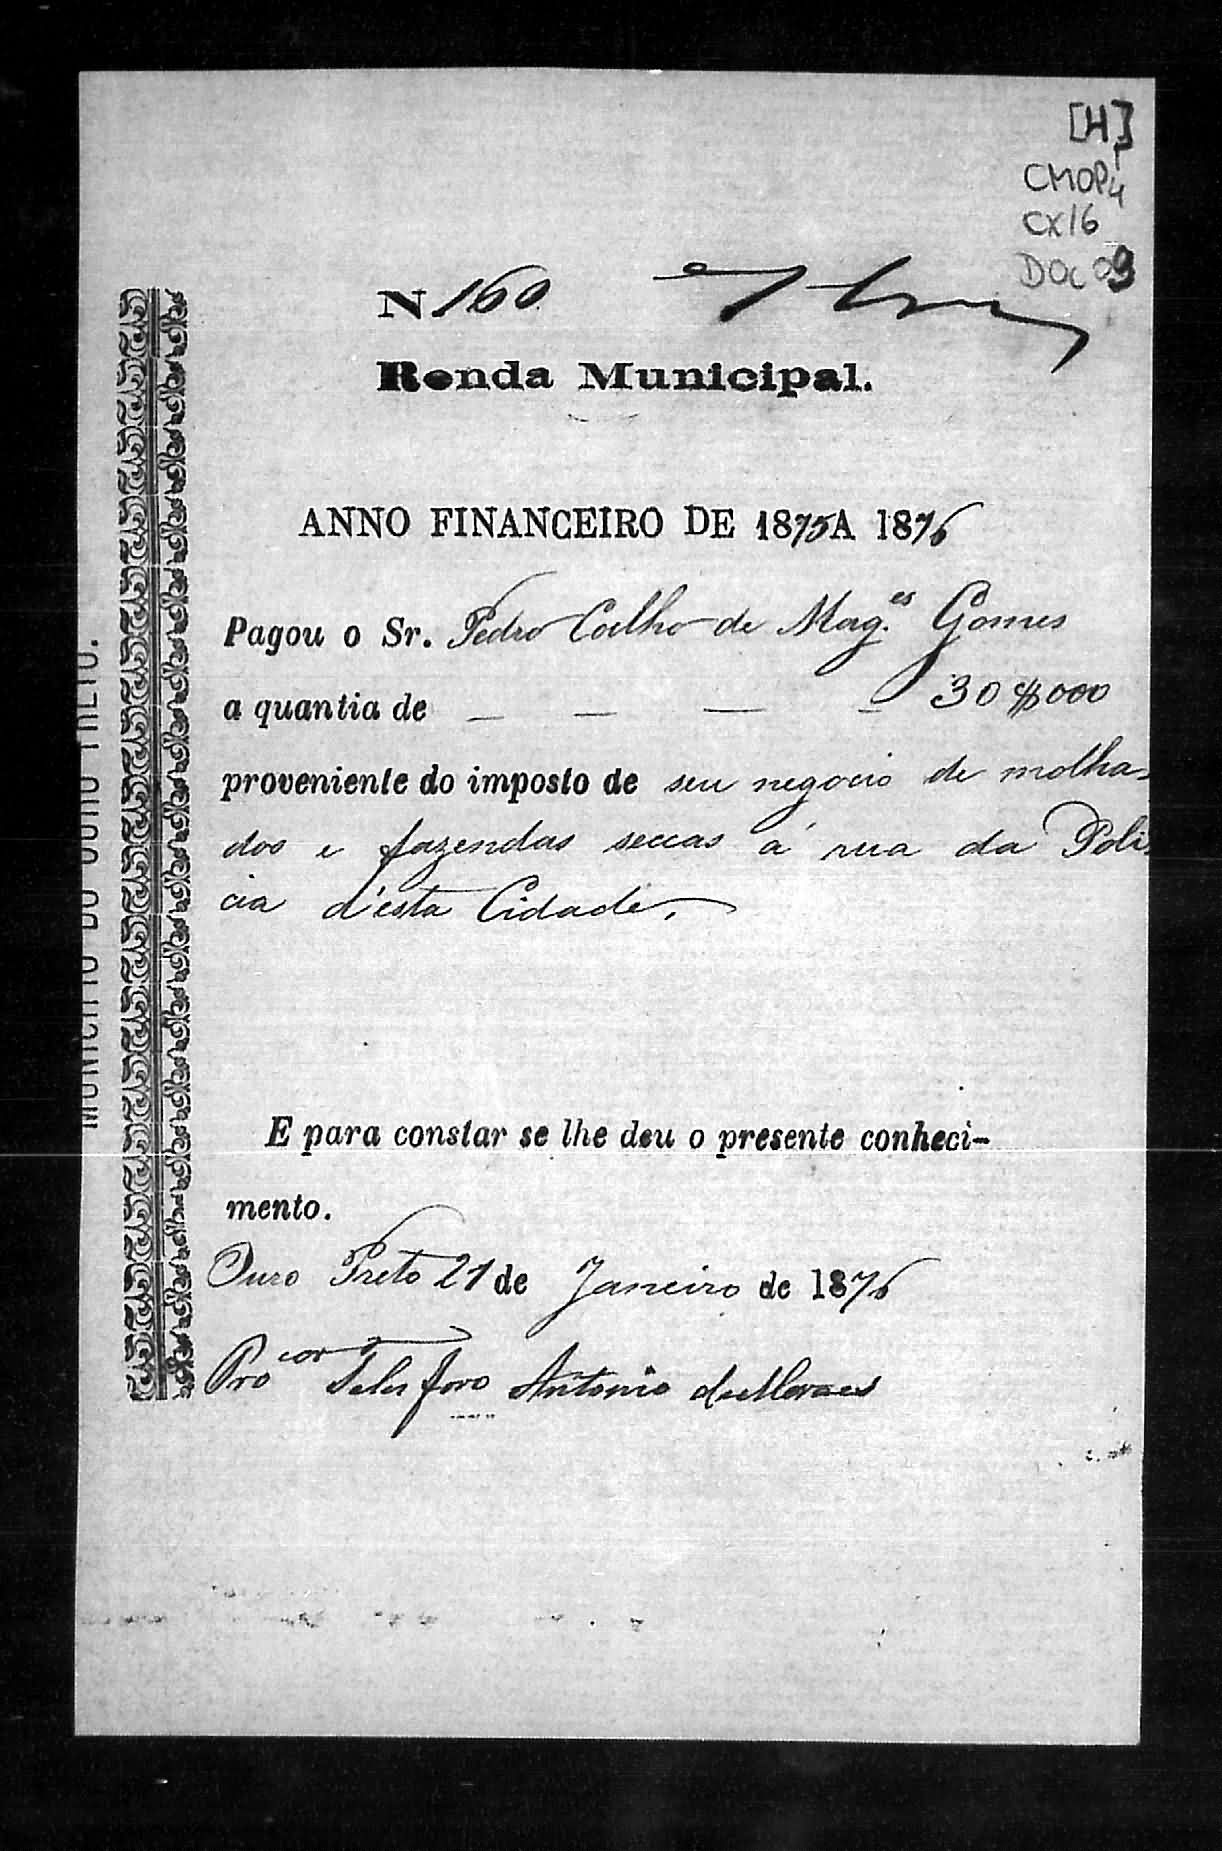 [4]
CMOP
CX16
DOC 09
N 160
Renda Municipal.
ANNO FINANCEIRO DE 1875 A 1876
Pagou o Sr. Pedro Coelho de Mag.es Gomes
a quantia de — — — — 30$000
proveniente do imposto de seu negocio de molha-
dos e fazendas seccas á rua da Poli-
cia d'esta Cidade.
E para constar se lhe deu o presente conheci-
mento.
Ouro Preto 21 de Janeiro de 1876
Procor Telesforo Antonio de Moraes
MUNICIPIO DO OURO PRETO.